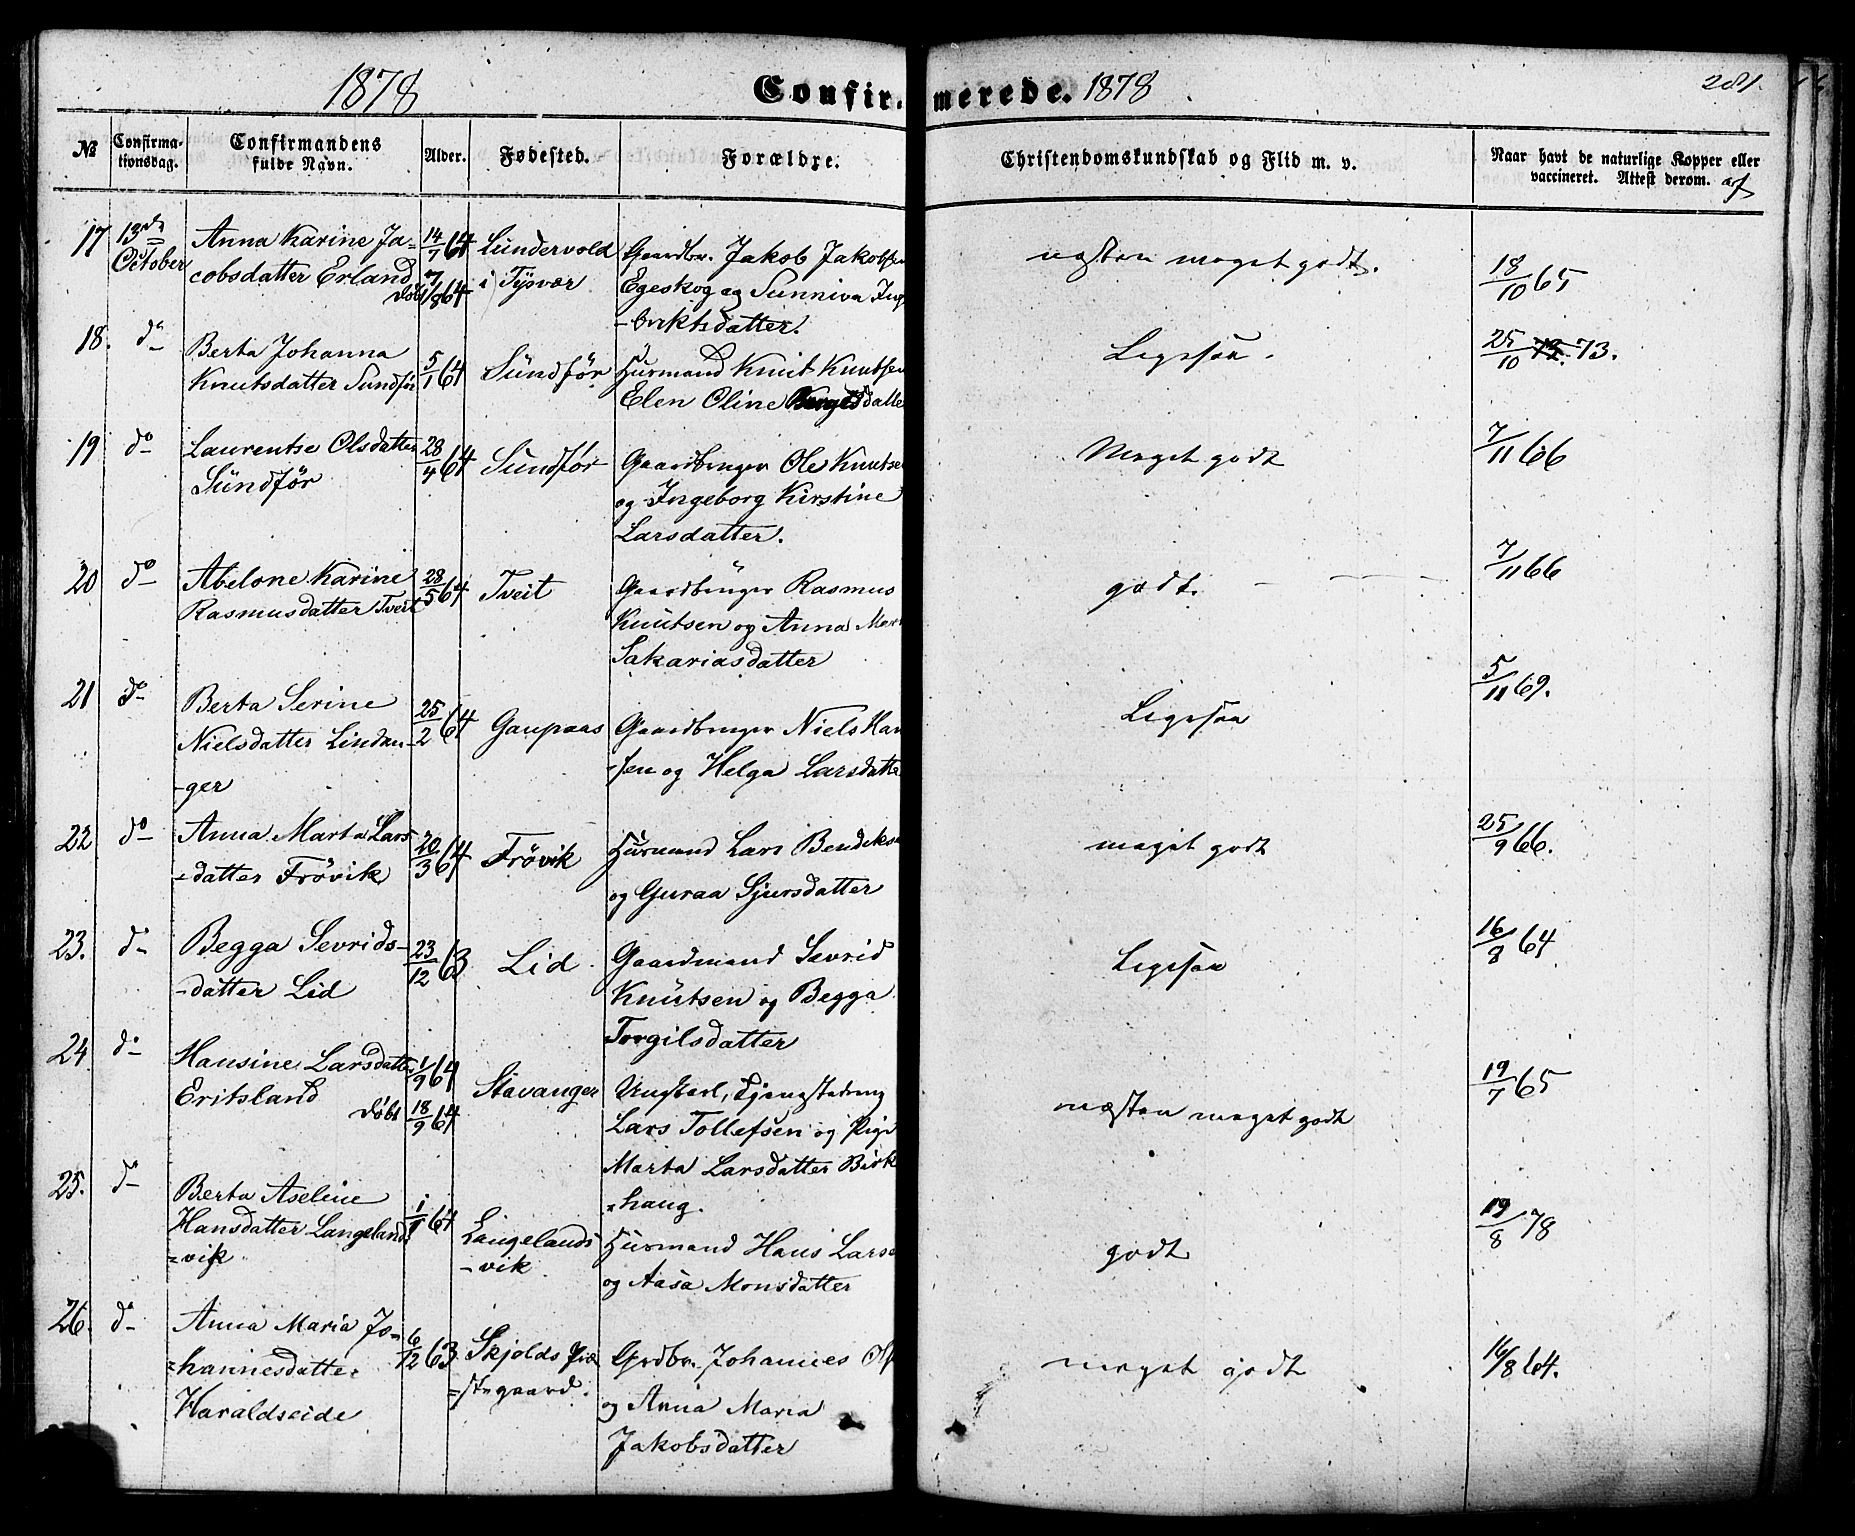 1878 Confir- merede. 1878 281.
№ Confirma- tionsdag. Confirmandens fulde Navn. Alder. Fødested. Forældre. Christendomskundskab og Flid m. v. Naar havt de naturlige Kopper eller vaccineret. Attest derom. af
17 13de October
Anna Karine Ja-
cobsdatter Erland
14/7 64
døbt 7/8 64
Lundervold
i Tysvær
Gaardbr. Jakob Jakobsen
Egeskog og Sunniva Ing
-briktsdatter.
næsten meget godt.
18/10 65
18. do
Berta Johanna
Knutsdatter Sundför
5/1 64
Sundför
Husmand Knut Knutsen
Elen Oline datte
Ligesaa.
25/10 73.
19 do
Laurentse Olsdatter
Sundför
28/4 64
Sundför
Gaardbruger Ole Knutse
og Ingeborg Kirstine
Larsdatter.
Meget godt
7/11 66
20 do
Abelone Karine
Rasmusdatter Tveit
28/5 64
Tveit
Gaardbruger Rasmus
Knutsen og Anna Mar
Sakariasdatter
godt.
7/11 66
21 do
Berta Serine
Nielsdatter Lindan-
-ger
25/2 64
Gaupaas
Gaardbruger Niels Han
-sen og Helga Larsdatte
Ligesaa
5/11 69.
22 do
Anna Marta Lars
-datter Frövik
20/3 64
Frövik
Husmand Lars Bendikse
og Guraa Sjursdatter
meget godt
25/9 66.
23. do
Begga Sevrids-
-datter Lid
23/12 63
Lid
Gaardmand Sevrid
Knutsen og Begga
Torgilsdatter
Ligesaa
16/8 64
24 do
Hansine Larsdatter
Eritsland
1/9 64
døbt 18/9 64
Stavanger
Ungkarl, Tjenestedreng
Lars Tollefsen og Pige
Marta Larsdatter Birk
=haug.
næsten meget godt
19/7 65
25. do
Berta Aseline
Hansdatter Langelands
=vik
64
Langelands
-vik
Husmand Hans Larse
og Aasa Monsdatter
godt
19/8 78
26. do
Anna Maria Jo-
=hannesdatter
Haraldseide
6/12 63
Skjolds Præ
=stegaard.
Grdbr. Johannes Ols
og Anna Maria
Jakobsdatter
meget godt
16/8 64.